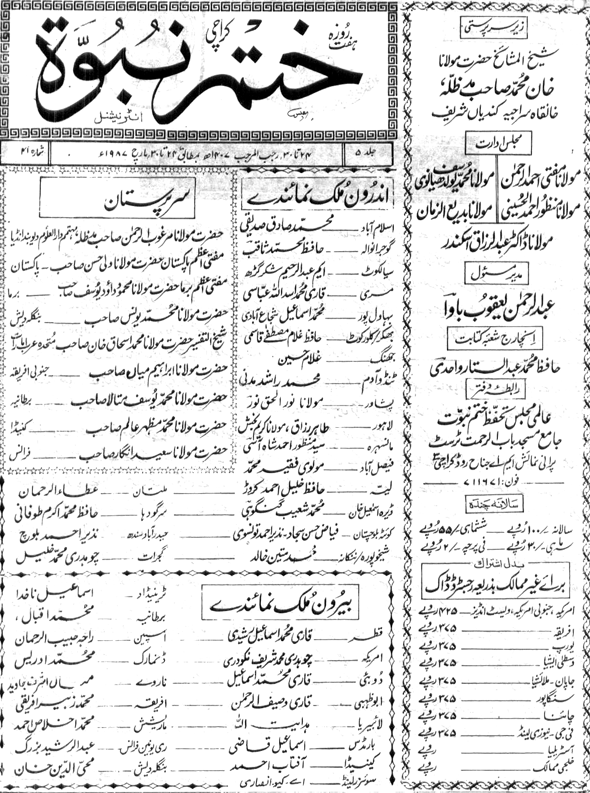 ہفت روزہ
ختم نبوۃ
کراچی
انٹرنیشنل
جلد ۵
۲۴ تا ۳۰ رجب المرجب ۱۴۰۷ھ بمطابق ۲۴ تا ۳۰ مارچ ۱۹۸۷ء
شمارہ ۴۱
زیر سرپرستی
شیخ المشائخ حضرت مولانا
خان محمد صاحب مدظلہٗ
خانقاہ سراجیہ کندیاں شریف
مجلس ادارت
مولانا مفتی احمد الرحمٰن مولانا محمد یوسف لدھیانوی
مولانا منظور احمد الحسینی مولانا بدیع الزمان
مولانا ڈاکٹر عبدالرزاق اسکندر
مدیر مسئول
عبدالرحمٰن یعقوب باوا
انچارج شعبہ کتابت
حافظ محمد عبدالستار واحدی
رابطہ دفتر
عالمی مجلس تحفظ ختم نبوت
جامع مسجد باب الرحمت ٹرسٹ
پرانی نمائش ایم اے جناح روڈ کراچی
فون : ۷۱۱۶۷۱
سالانہ چندہ
سالانہ ۱۰۰/ روپے ششماہی ۵۵/ روپے
سہ ماہی ۳۰/ روپے فی پرچہ ۲/ روپے
بدل اشتراک
برائے غیر ممالک بذریعہ رجسٹرڈ ڈاک
امریکہ، جنوبی امریکہ، ویسٹ انڈیز ۴۲۵ روپے
افریقہ ۳۷۵ روپے
یورپ ۳۷۵ روپے
وسطی ایشیا ۳۷۵ روپے
جاپان، ملائشیا ۳۷۵ روپے
سنگاپور ۳۷۵ روپے
چائنا ۳۷۵ روپے
فجی، نیوزی لینڈ ۳۷۵ روپے
آسٹریلیا روپے
خلیجی ممالک روپے
اندرون ملک نمائندے
اسلام آباد محمد صادق صدیقی
گوجرانوالہ حافظ محمد ثاقب
سیالکوٹ ایم عبدالرحیم شکرگڑھ
مری قاری محمد اسد اللہ عباسی
بہاول پور محمد اسماعیل شجاع آبادی
بھکر/کلورکوٹ حافظ غلام مصطفےٰ قاسمی
جھنگ غلام حسین
ٹنڈو آدم محمد راشد مدنی
پشاور مولانا نور الحق نور
لاہور طاہر رزاق، مولانا کریم بخش
مانسہرہ سید منظور احمد شاہ آسی
فیصل آباد مولوی فقیر محمد
لیہ حافظ خلیل احمد کروڑ
ڈیرہ اسماعیل خان محمد شعیب گنگوہی
کوئٹہ بلوچستان فیاض حسن سجاد، نذیر احمد تونسوی
شیخوپورہ/ننکانہ محمد متین خالد
ملتان عطاء الرحمان
سرگودھا حافظ محمد اکرم طوفانی
حیدرآباد سندھ نذیر احمد بلوچ
گجرات چوہدری محمد خلیل
سرپرستان
حضرت مولانا مرغوب الرحمٰن صاحب مدظلہ مہتمم دارالعلوم دیوبند انڈیا
مفتی اعظم پاکستان حضرت مولانا ولی حسن صاحب پاکستان
مفتی اعظم برما حضرت مولانا محمد داؤد یوسف صاحب برما
حضرت مولانا محمد یونس صاحب بنگلہ دیش
شیخ التفسیر حضرت مولانا محمد اسحاق خان صاحب متحدہ عرب امارات
حضرت مولانا ابراہیم میاں صاحب جنوبی افریقہ
حضرت مولانا محمد یوسف متالا صاحب برطانیہ
حضرت مولانا محمد مظہر عالم صاحب کنیڈا
حضرت مولانا سعید انگار صاحب فرانس
بیرون ملک نمائندے
قطر قاری محمد اسماعیل رشیدی
امریکہ چوہدری محمد شریف نکودری
دوبئی قاری محمد اسماعیل
ابوظہبی قاری وصیف الرحمٰن
لائبیریا ہدایت اللہ
بارڈس اسماعیل قاضی
کینیڈا آفتاب احمد
سوئزرلینڈ اے۔ کیو۔ انصاری
ٹرینیڈاڈ اسماعیل ناخدا
برطانیہ محمد اقبال
اسپین راجہ حبیب الرحمان
ڈنمارک محمد ادریس
ناروے میاں اشرف جاوید
افریقہ محمد زبیر افریقی
مارشس محمد اخلاص احمد
ری یونین فرانس عبدالرشید بزرگ
بنگلہ دیش محی الدین خان